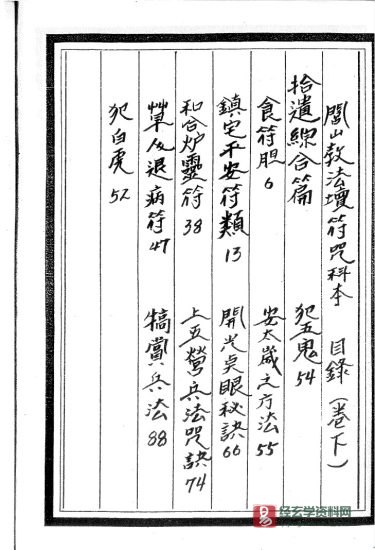 閭山教法壇符咒科本 目錄(卷下)
拾遺綜合篇
犯五鬼 54
食符胆 6
安太歲之方法 55
鎮宅平安符類 13
開光奌眼秘訣 66
和合炉靈符 38
上五營兵法咒訣 74
草人退病符 47
犒賞兵法 88
犯白虎 52
易 经玄学资料网